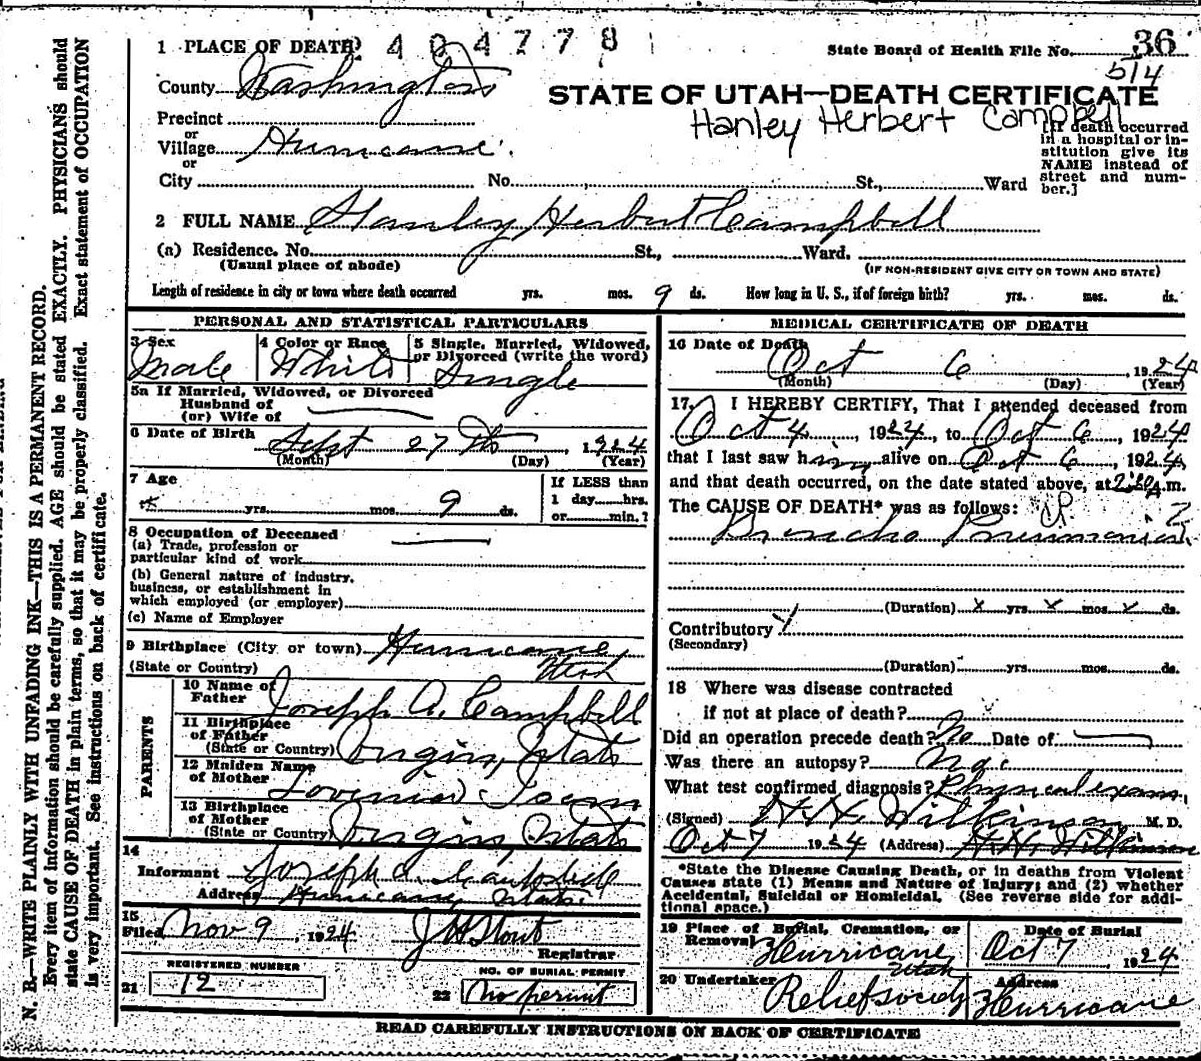 1 PLACE OF DEATH 404778 State Board of Health File No. 36
514
County Washington
STATE OF UTAH—DEATH CERTIFICATE
Hanley Herbert Campbell
Precinct
or
Village Hurricane.
or
City No. St., Ward
[If death occurred
in a hospital or in-
stitution give its
NAME instead of
street and num-
ber.]
2 FULL NAME Stanley Herbert Campbell
(a) Residence. No. St., Ward.
(Usual place of abode) (IF NON-RESIDENT GIVE CITY OR TOWN AND STATE)
Length of residence in city or town where death occurred yrs. mos. 9 ds. How long in U. S., if of foreign birth? yrs. mos. ds.
PERSONAL AND STATISTICAL PARTICULARS
3 Sex 4 Color or Race 5 Single, Married, Widowed,
or Divorced (write the word)
Male White Single
5a If Married, Widowed, or Divorced
Husband of
(or) Wife of
6 Date of Birth Sept 27th, 1924
(Month) (Day) (Year)
7 Age If LESS than
yrs. mos. 9 ds. 1 day hrs.
or min.?
8 Occupation of Deceased
(a) Trade, profession or
particular kind of work
(b) General nature of industry,
business, or establishment in
which employed (or employer)
(c) Name of Employer
9 Birthplace (City or town) Hurricane
(State or Country) Utah
PARENTS
10 Name of
Father Joseph A. Campbell
11 Birthplace
of Father
(State or Country) Virgin, Utah
12 Maiden Name
of Mother Lovenia Isom
13 Birthplace
of Mother
(State or Country) Virgin, Utah
14
Informant Joseph A. Campbell
Address Hurricane, Utah.
15
Filed Nov 9, 1924 J H Stout
Registrar
REGISTERED NUMBER NO. OF BURIAL PERMIT
21 12 22 No permit
MEDICAL CERTIFICATE OF DEATH
16 Date of Death
Oct 6, 1924
(Month) (Day) (Year)
17. I HEREBY CERTIFY, That I attended deceased from
Oct 4, 1924, to Oct 6, 1924
that I last saw him alive on Oct 6, 1924
and that death occurred, on the date stated above, at m.
The CAUSE OF DEATH* was as follows:
Broncho Pneumonia.
(Duration) x yrs. x mos. x ds.
Contributory
(Secondary)
(Duration) yrs. mos. ds.
18 Where was disease contracted
if not at place of death?
Did an operation precede death? No Date of
Was there an autopsy? No.
What test confirmed diagnosis? Physical exam.
(Signed) H. H. Wilkinson M. D.
Oct 7 1924 (Address) H. H. Wilkinson
*State the Disease Causing Death, or in deaths from Violent
Causes state (1) Means and Nature of Injury; and (2) whether
Accidental, Suicidal or Homicidal. (See reverse side for addi-
tional space.)
19 Place of Burial, Cremation, or Date of Burial
Removal Hurricane Utah Oct 7 1924
20 Undertaker Address
Relief society Hurricane
READ CAREFULLY INSTRUCTIONS ON BACK OF CERTIFICATE
N. B.—WRITE PLAINLY WITH UNFADING INK—THIS IS A PERMANENT RECORD.
Every item of information should be carefully supplied. AGE should be stated EXACTLY. PHYSICIANS should
state CAUSE OF DEATH in plain terms, so that it may be properly classified. Exact statement of OCCUPATION
is very important. See instructions on back of certificate.